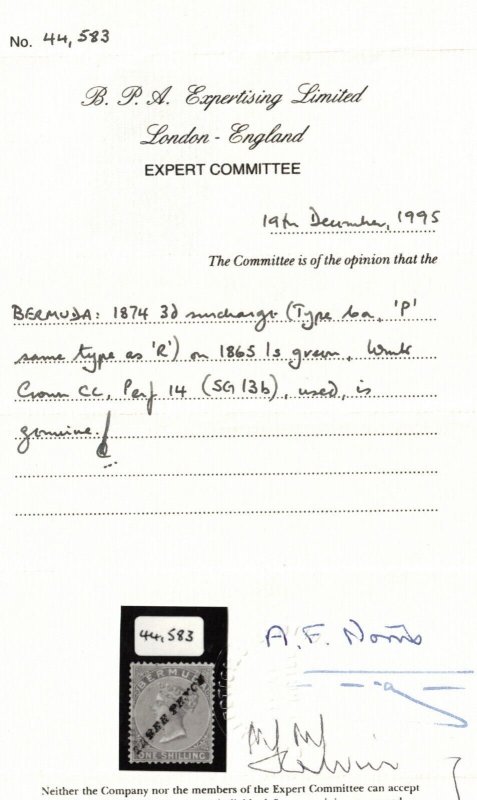 No. 44,583
B. P. A. Expertising Limited
London - England
EXPERT COMMITTEE
19th December, 1995
The Committee is of the opinion that the
BERMUDA: 1874 3d surcharge (Type 6a, 'P'
same type as 'R') on 1865 1s green, Wmk
Crown CC, Perf 14 (SG 13b), used, is
genuine.
44,583
BERMUDA
THREE PENCE
ONE SHILLING
A. F. Norris
Neither the Company nor the members of the Expert Committee can accept